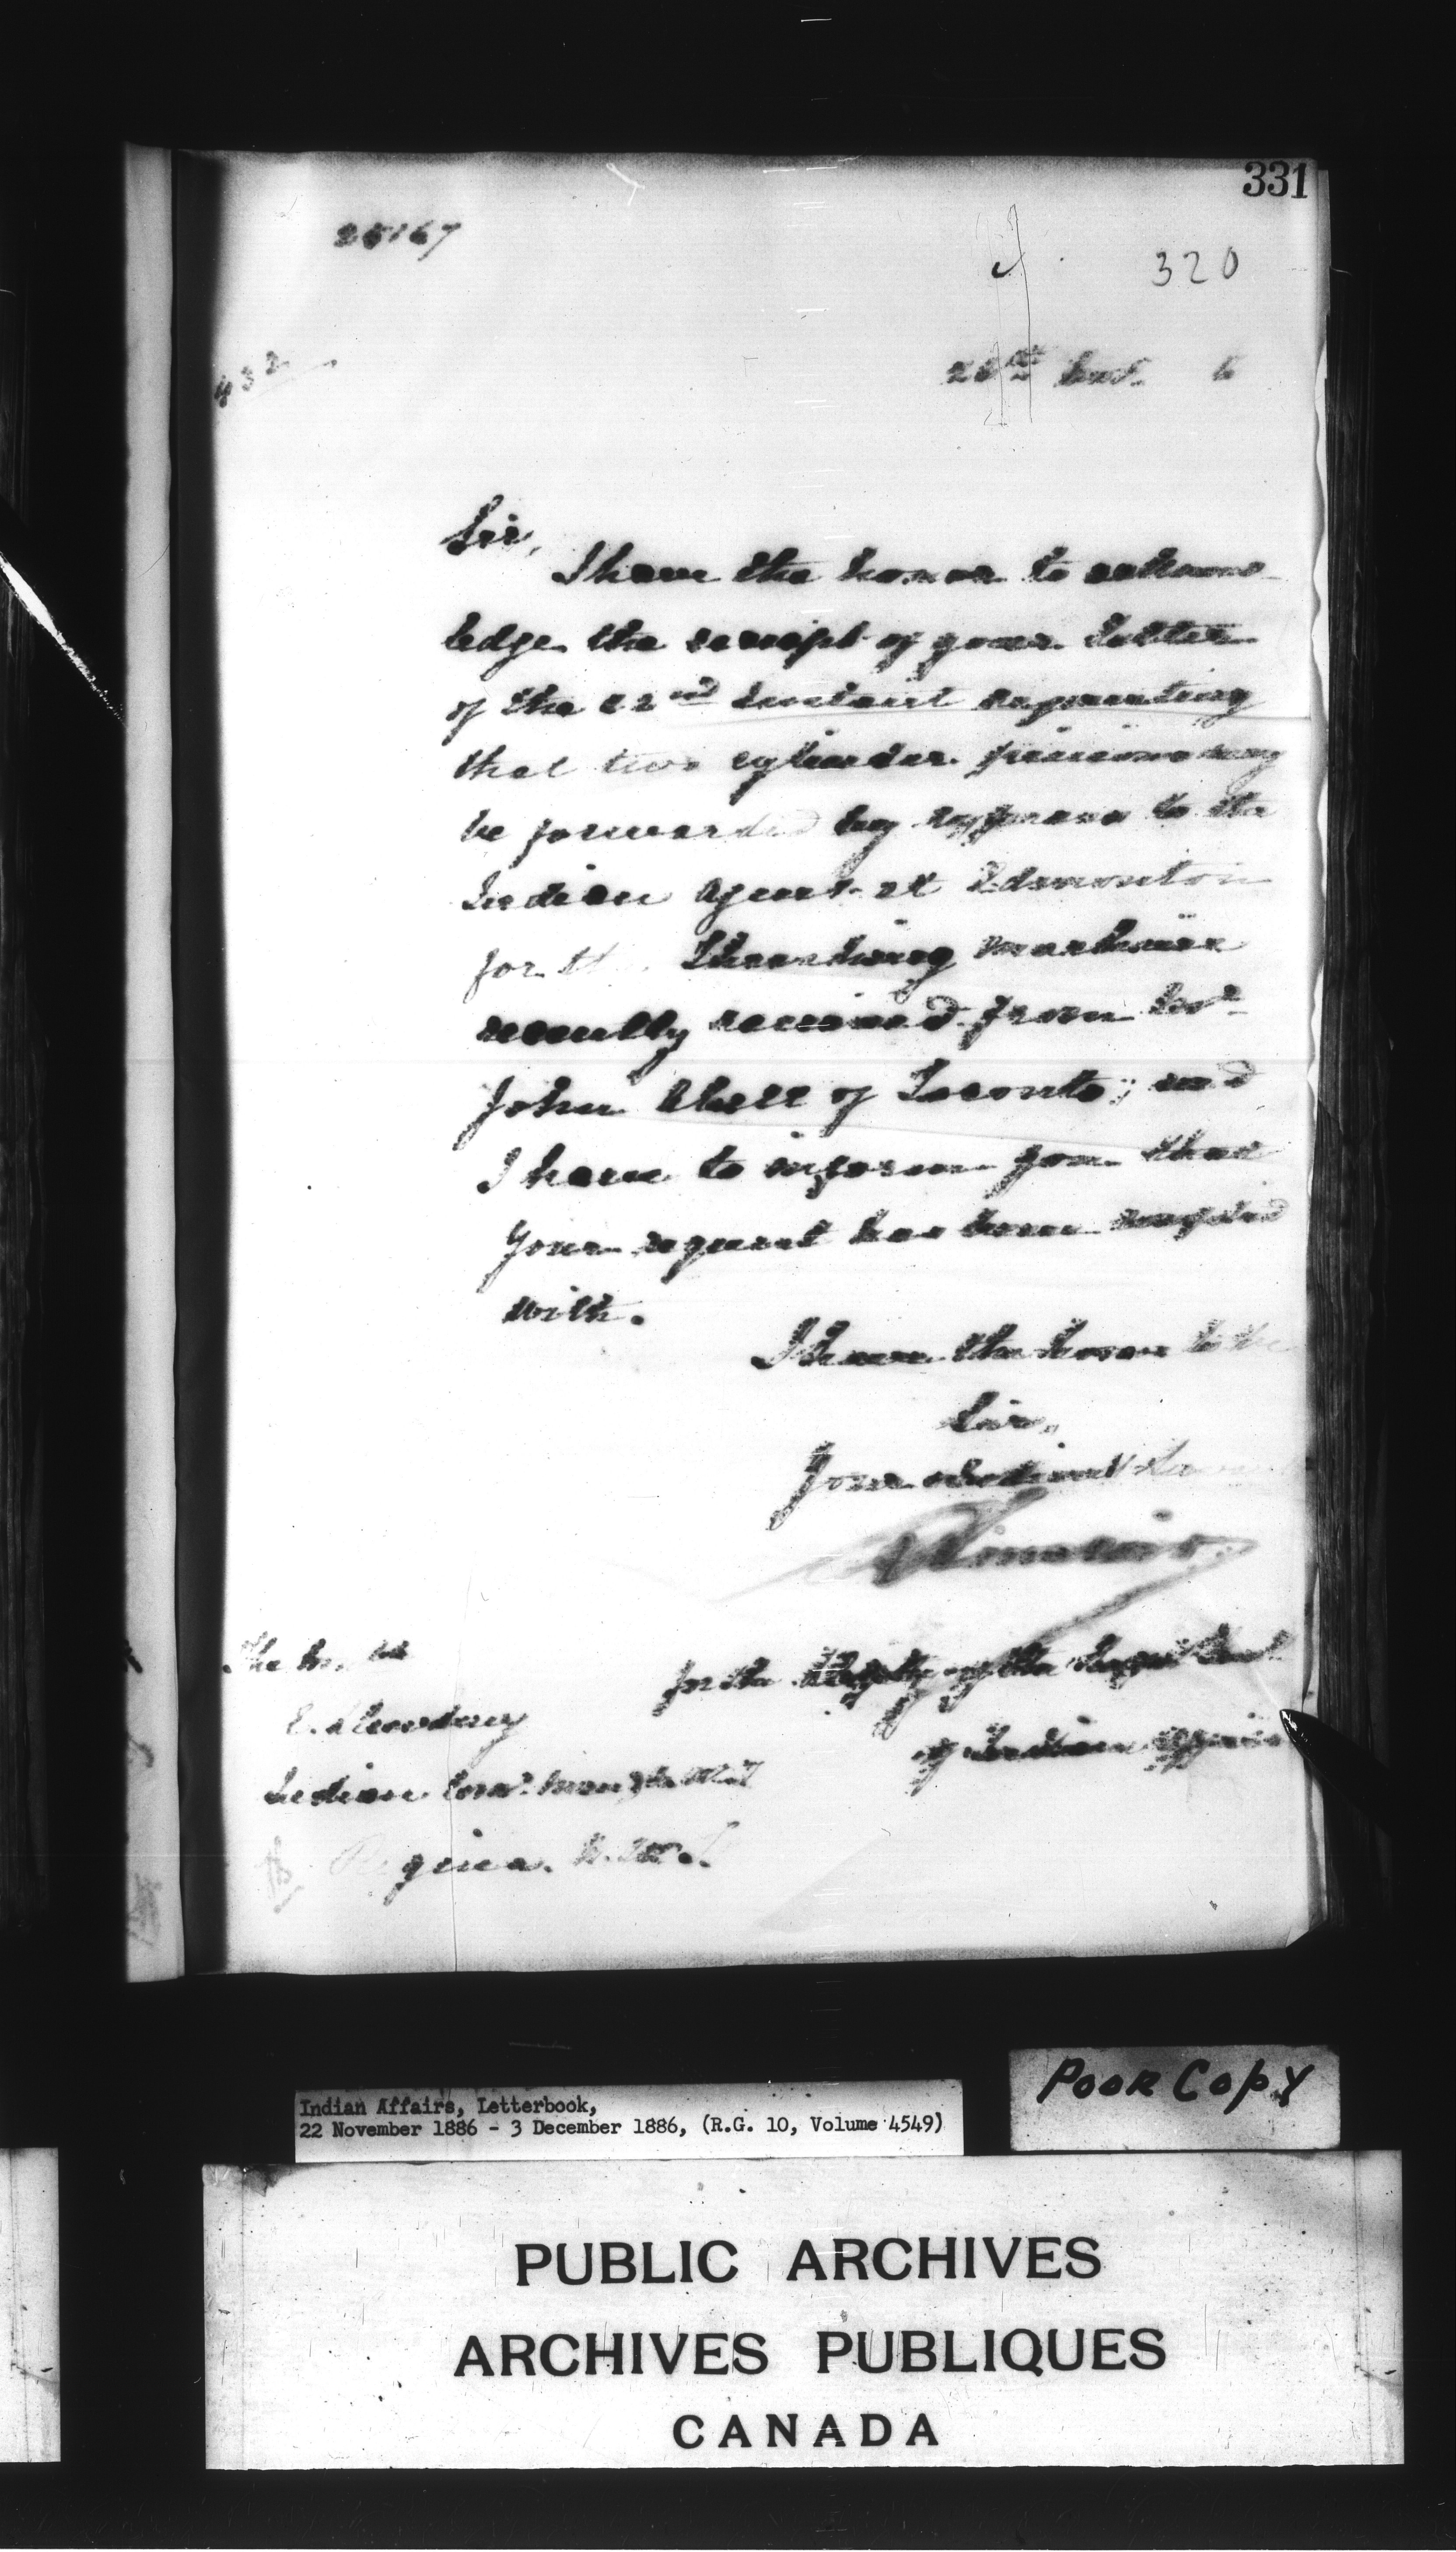 331
25167
320
432
26th Nov. 6
Sir,
I have the honor to acknow-
ledge the receipt of your letter
of the 22nd instant requesting
that two cylinder pinions may
be forwarded by express to the
Indian Agent at Edmonton
for th Threshing Machine
recently received from Mr
John Abell of Toronto; and
I have to inform you that
your request has been complied
with.
I have the honor to be
Sir,
Your obedient
for the Deputy of the Supt Genl
of Indian Affairs
The Hon. ble
E. Dewdney
Indian Comr. N.W.T
Regina. N.W.T.
Poor Copy
Indian Affairs, Letterbook,
22 November 1886 - 3 December 1886, (R.G. 10, Volume 4549)
PUBLIC ARCHIVES
ARCHIVES PUBLIQUES
CANADA